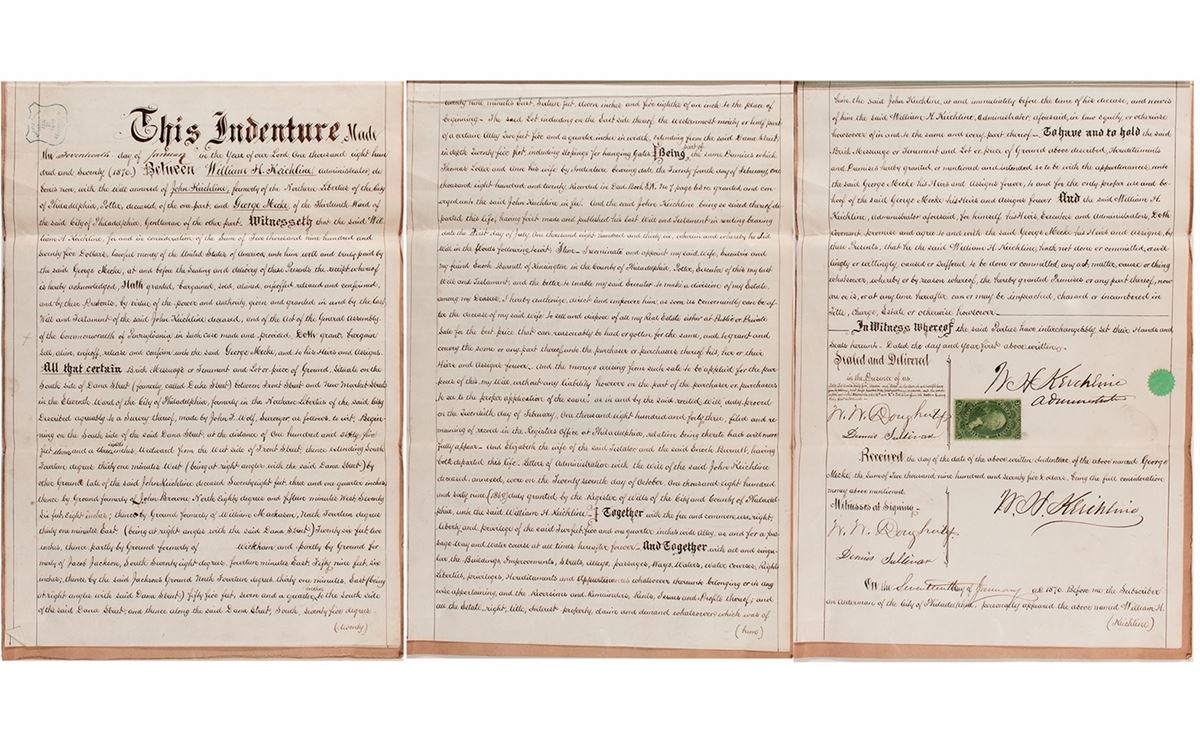 This Indenture Made
the Seventeenth day of January in the Year of our Lord One thousand eight hun
dred and Seventy (1870) Between William H. Keichline administrator, de
bonis non, with the Will annexed of John Keichline, formerly of the Northern Liberties of the City
of Philadelphia, Potter, deceased, of the one part, and George Mecke, of the Thirteenth Ward of
the said City of Philadelphia, Gentleman of the other part. Witnesseth that the said Wil
liam H. Keichline, for and in consideration of the Sum of Two thousand nine hundred and
Seventy five Dollars, lawful money of the United States of America, unto him well and truly paid by
the said George Mecke, at and before the Sealing and delivery of these Presents, the receipt whereof
is hereby acknowledged, Hath granted, bargained, sold, aliened, enfeoffed released and confirmed,
and by these Presents, by virtue of the power and authority given and granted in and by the Last
Will and Testament of the said John Keichline deceased, and of the Act of the General Assembly
of the Commonwealth of Pennsylvania in such case made and provided, Doth grant, bargain
sell, alien, enfeoff, release and confirm unto the said George Mecke, and to his Heirs and Assigns.
All that certain Brick Messuage or Tenement and Lot or piece of Ground, Situate on the
South side of Dana Street (formerly called Duke Street) between Front Street and New Market Street
in the Eleventh Ward of the City of Philadelphia, formerly in the Northern Liberties of the said City
Described agreeably to a Survey thereof, made by John F. Wolf, Surveyor, as follows, to wit, Begin
ning on the South side of the said Dana Street, at the distance of One hundred and sixty five
feet and inches, Westward, from the West side of Front Street; thence extending South
Fourteen degrees thirty one minutes West (being at right angles with the said Dana Street) by
other Ground late of the said John Keichline deceased Seventy eight feet, three and one quarter inches;
thence by Ground formerly of John Browne North Eighty degrees and fifteen minutes West, Seventy
Six feet Eight inches; thence by Ground formerly of William Mackason, North Fourteen degrees
thirty one minutes East (being at right angles with the said Dana Street) Twenty six feet two
inches, thence partly by Ground formerly of Wickham and partly by Ground for
merly of Jacob Jackson, South Seventy Eight degrees, fourteen minutes East, Fifty nine feet, six
inches; thence by the said Jacksons Ground North Fourteen degrees, thirty one minutes, East (being
at right angles with said Dana Street) fifty five feet, seven and a quarter inches to the South side
of the said Dana Street; and thence along the said Dana Street, South, seventy five degrees
(twenty)
twenty nine minutes East, Sixteen feet, eleven inches and five eighths of an inch to the place of
beginning. The said Lot, including on the East side thereof the Westernmost moiety or half part
of a certain Alley Two feet five and a quarter inches in width, extending from the said Dana Street,
in depth Twenty five feet, including slopings for hanging Gate. Being part of the same Premises which
Thomas Lotte and Ann his wife by Indenture bearing date the Twenty fourth day of February, One
thousand eight hundred and twenty, Recorded in Deed Book I.R. No 7 page 610 re. granted, and con
veyed unto the said John Keichline in fee. And the said John Keichline being so seized thereof de
parted this life, having first made and published his last Will and Testament in writing bearing
date the First day of July, One thousand eight hundred and thirty six, wherein and whereby he did
Will in the Words following to wit: Item I nominate and appoint my said wife, Executrix and
my friend Enoch Burnett of Kensington in the County of Philadelphia, Potter, Executor of this my last
Will and Testament, and the better to enable my said Executor to make a division of my Estate,
among my Devisees, I hereby authorize, direct and empower him, as soon as conveniently can be af-
ter the decease of my said wife to sell and dispose of all my Real Estate either at Public or Private
Sale for the best price that can reasonably be had or gotten for the same, and to grant and
convey the same or any part thereof unto the purchaser or purchasers thereof his, her or their
Heirs and Assigns forever. And the moneys arising from such sale to be applied for the pur
poses of this my Will, without any liability however on the part of the purchaser or purchasers
to see to the proper application of the same, as in and by the said recited Will, duly proved
on the Twentieth day of February, One thousand eight hundred and forty three, filed and re
maining of record in the Registers Office at Philadelphia, relation being thereto had will more
fully appear. And Elizabeth the wife of the said Testator and the said Enoch Burnett, having
both departed this life. Letters of Administration with the Will of the said John Keichline
deceased, annexed, were on the Twenty Seventh day of October, One thousand eight hundred
and sixty nine (1869) duly granted by the Register of Wills of the City and County of Philadel
phia, unto the said William H. Keichline. Together with the free and common use, right,
liberty and privilege of the said Two feet five and one quarter inches wide Alley, as and for a pas
sage Way and water course at all times hereafter forever. And Together with all and singu
lar the Buildings, Improvements, Streets, Alleys, passages, Ways, Waters, water courses, Rights
Liberties, privileges, Hereditaments and Appurtenances whatsoever thereunto belonging or in any
wise appertaining, and the Reversions and Remainders, Rents, Issues and Profits thereof; and
all the Estate, right, title, interest property, claim and demand whatsoever, which was of
(him)
him, the said John Keichline, at and immediately before the time of his decease, and now is
of him, the said William H. Keichline, Administrator aforesaid, in law Equity, or otherwise
howsoever of in and to the same and every part thereof. To have and to hold the said
Brick Messuage or Tenement and Lot or piece of Ground above described, Hereditaments
and Premises hereby granted, or mentioned and intended so to be with the appurtenances, unto
the said George Mecke his Heirs and Assigns forever, to and for the only proper use and be-
hoof of the said George Mecke his Heirs and Assigns forever. And the said William H.
Keichline, Administrator aforesaid, for himself, his Heirs, Executors and Administrators, Doth
Covenant, promise and agree to and with the said George Mecke his Heirs and Assigns, by
these Presents, that he the said William H. Keichline, hath not done or committed, or wil
lingly or wittingly, caused or Suffered to be done or committed, any act, matter, cause or thing
whatsoever, whereby or by reason whereof, the hereby granted Premises or any part thereof, now
are or is, or at any time hereafter can or may be, impeached, charged or incumbered in
Title, Charge, Estate or otherwise howsoever.
In Witness Whereof the said Parties have interchangeably set their Hands and
Seals hereunto. Dated the day and Year first above written.
Sealed and Delivered
in the Presence of us
W H Keichline
Administrator
W. W. Dougherty
Dennis Sullivan
Received the day of the date of the above written Indenture of the above named George
Mecke, the Sum of Two thousand, nine hundred and seventy five Dollars, being the full consideration
money above mentioned.
Witnesses at Signing
W. H. Keichline
W. W. Dougherty
Dennis Sullivan
On the Seventeenth day of January A.D. 1870. Before me the Subscriber
an Alderman of the City of Philadelphia, personally appeared the above named William H.
(Keichline)